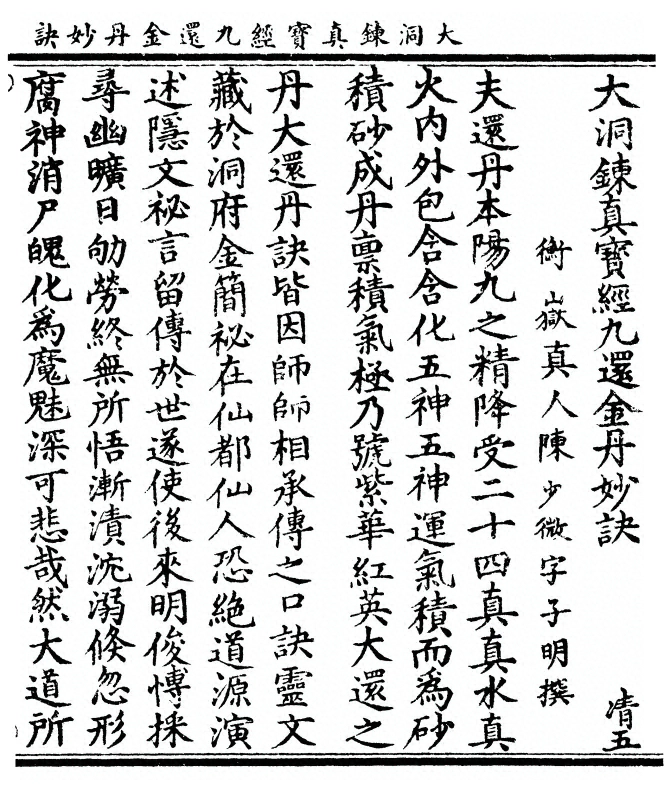 大洞鍊真寶經九還金丹妙訣
大洞鍊真寶經九還金丹妙訣 清五
衡嶽真人陳少微字子明撰
夫還丹本陽九之精降受二十四真真水真
火内外包含含化五神五神運氣積而為砂
積砂成丹禀積氣極乃號紫華紅英大還之
丹大還丹訣皆因師師相承傳之口訣靈文
藏於洞府金簡祕在仙都仙人恐絶道源演
述隱文祕言留傳於世遂使後來明俊慱採
尋幽曠日劬勞終無所悟漸漬沈溺倐忽形
腐神消尸魄化為魔魅深可悲哉然大道所